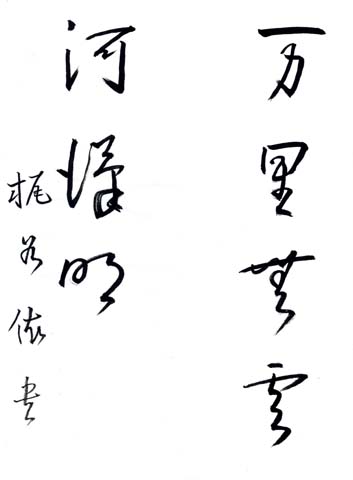 万里無雲
河漢明
梶谷依書